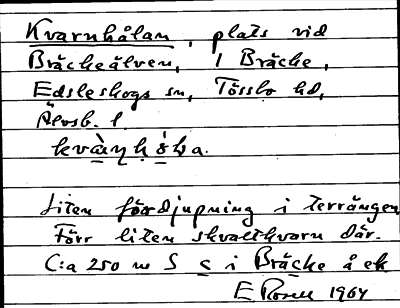 Kvarnhålan, plats vid
Bräckeälven, i Bräcke,
Edsleskogs sn, Tössbo hd,
Älvsb. l.
Liten fördjupning i terrängen
Förr liten skvaltkvarn där.
C:a 250 m S c i Bräcke å ek
E Rosell 1964